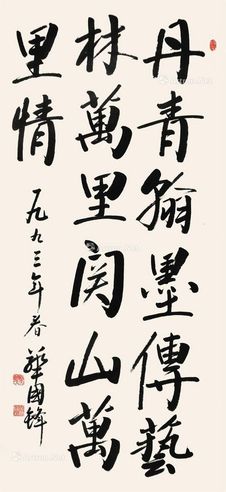 丹青翰墨傳藝
林萬里関山萬
里情
一九九三年春
華國鋒